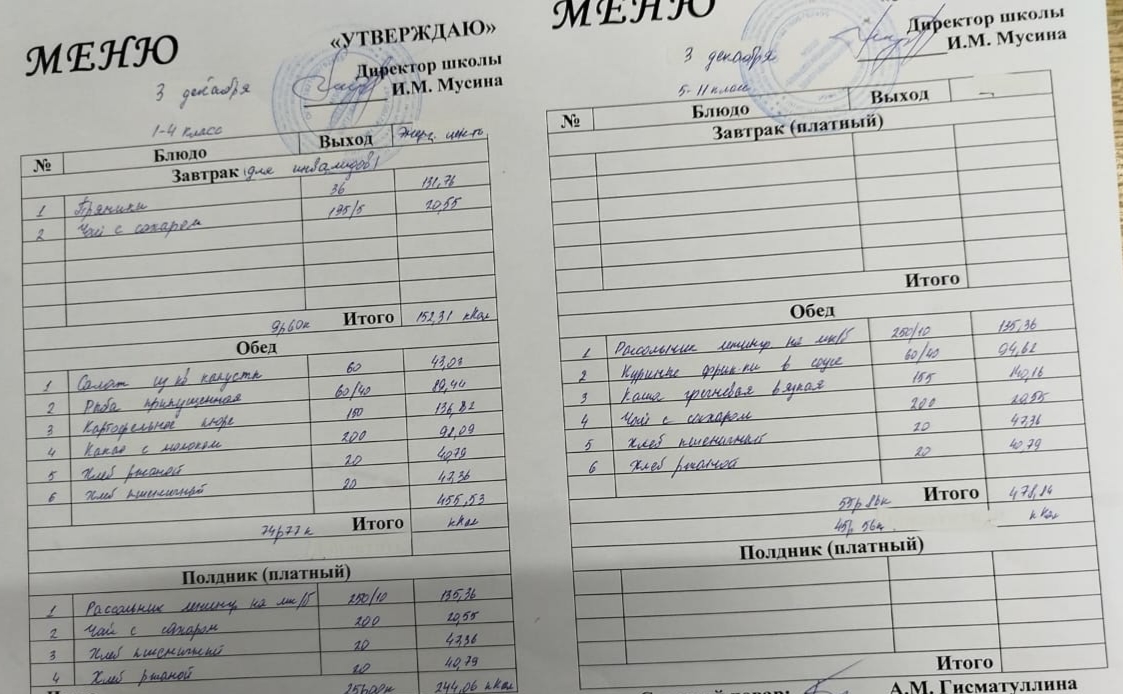 МЕНЮ
«УТВЕРЖДАЮ»
Директор школы
И.М. Мусина
3 декабря
1-4 класс
№ Блюдо Выход Энерг. цен-ть
Завтрак (для инвалидов)
1 Пряники 36 131,76
2 Чай с сахаром 195/5 20,55
9р60к Итого 152,31 кКал
Обед
1 Салат из кв капусты 60 43,03
2 Рыба припущенная 60/40
3 Картофельное пюре 150 136,82
4 Какао с молоком 200
5 Хлеб ржаной 20 40,79
6 Хлеб пшеничный 20 47,36
455,53
74р77к Итого кКал
Полдник (платный)
1 Рассольник ленингр на мк/б 250/10 135,36
2 Чай с сахаром 200 20,55
3 Хлеб пшеничный 20 47,36
4 Хлеб ржаной 20 40,79
25р00к 244,06 кКал
МЕНЮ
Директор школы
И.М. Мусина
3 декабря
5-11 класс
№ Блюдо Выход
Завтрак (платный)
Итого
Обед
1 Рассольник ленингр на мк/б 250/10 135,36
2 Куриные фрик-ки в соусе 60/40 94,62
3 Каша гречневая вязкая 155 140,16
4 Чай с сахаром 200 20,55
5 Хлеб пшеничный 20 47,36
6 Хлеб ржаной 20 40,79
55р86к Итого 478,84
45р56к кКал
Полдник (платный)
Итого
А.М. Гисматуллина